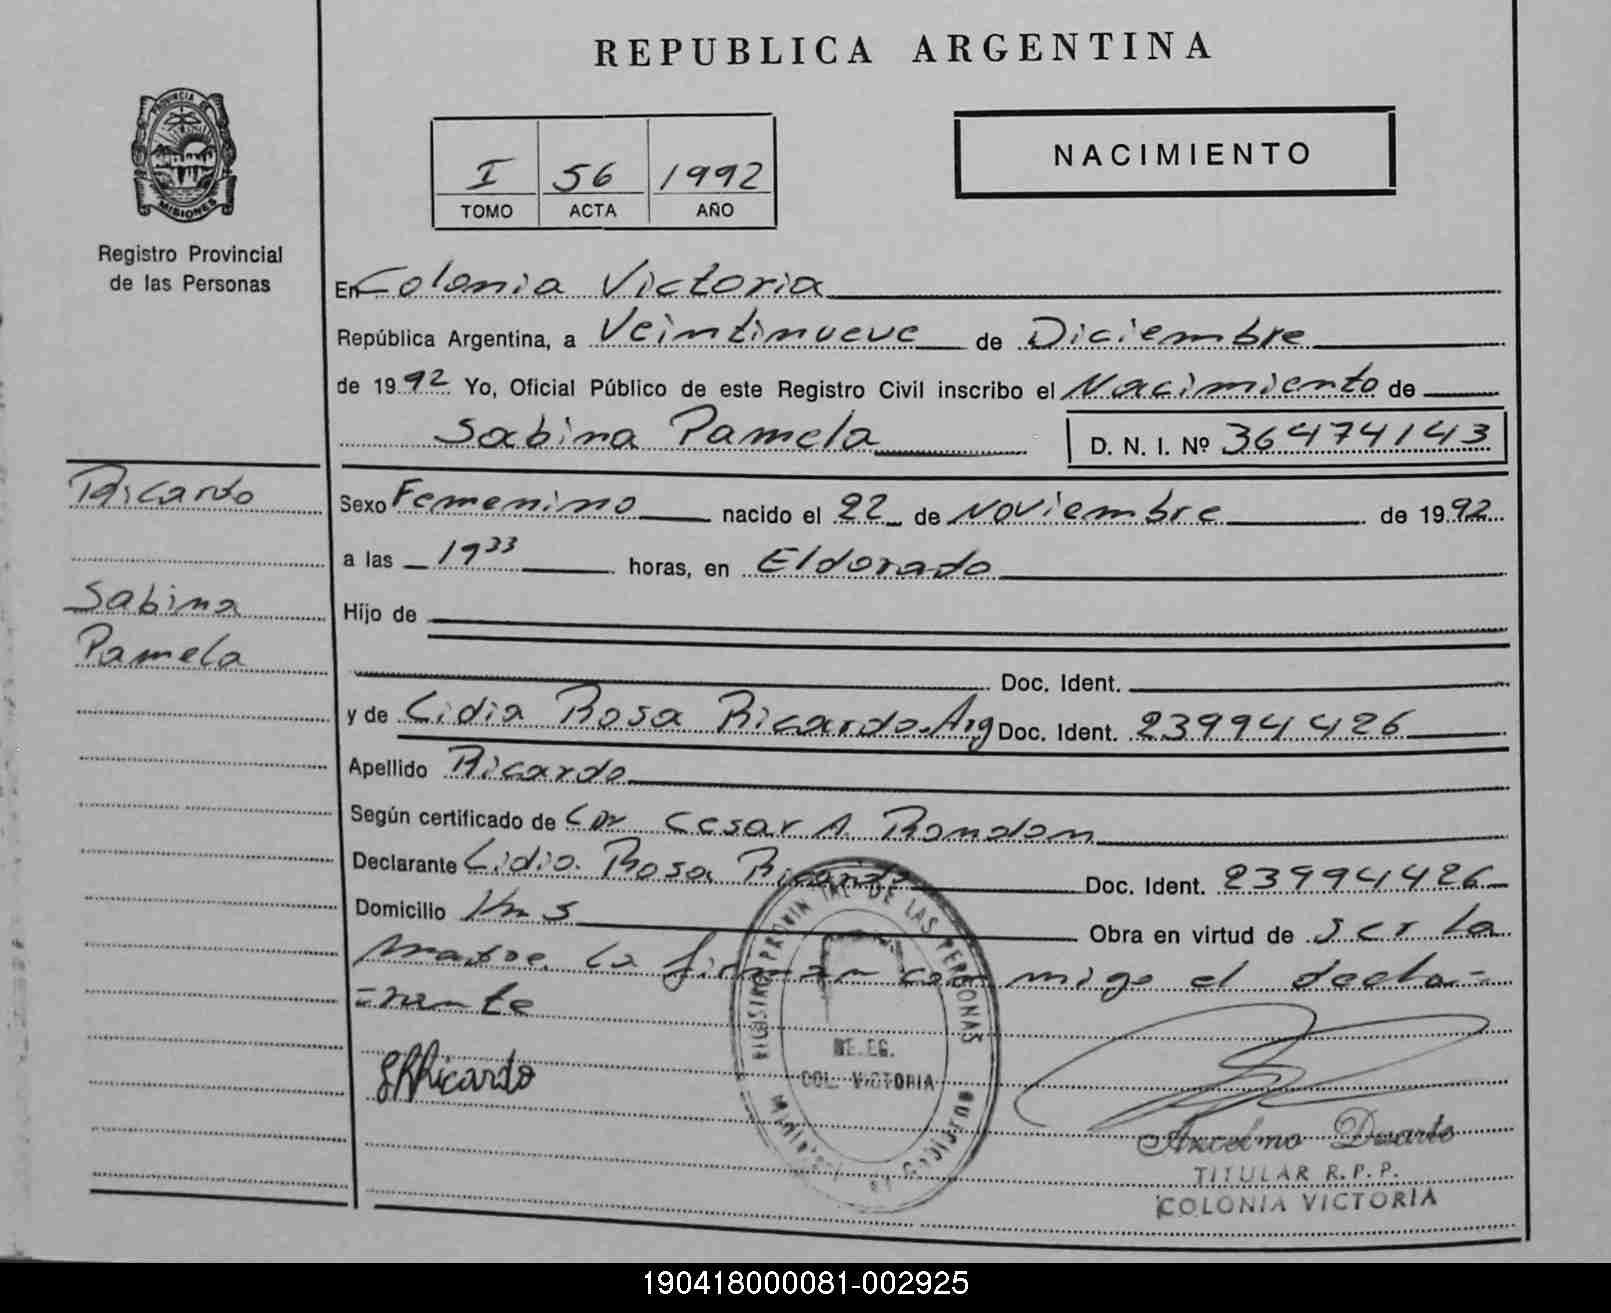 REPUBLICA ARGENTINA
PROVINCIA DE
MISIONES
Registro Provincial
de las Personas
I 56 1992
TOMO ACTA AÑO
NACIMIENTO
En Colonia Victoria
República Argentina, a Veintinueve de Diciembre
de 1992 Yo, Oficial Público de este Registro Civil inscribo el Nacimiento de
Sabina Pamela D. N. I. Nº 36474143
Ricardo
Sabina
Pamela
Sexo Femenino nacido el 22 de Noviembre de 1992
a las 19 33 horas, en Eldorado
Hijo de
Doc. Ident.
y de Lidia Rosa Ricardo. Arg Doc. Ident. 23994426
Apellido Ricardo
Según certificado de Cesar A. Rondon
Declarante Lidia Rosa Ricardo Doc. Ident. 23994426
Domicilio Km 5 Obra en virtud de ser la
madre. La firman conmigo el decla=
=rante
LRRicardo
REGISTRO PROVINCIAL DE LAS PERSONAS
DELEG.
COL. VICTORIA
Anselmo Duarte
TITULAR R.P.P.
COLONIA VICTORIA
190418000081-002925